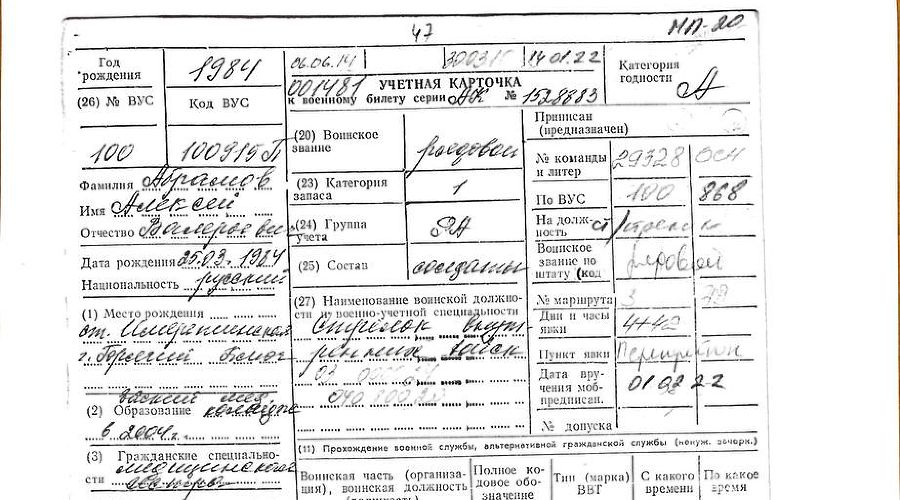 47
МП-20
Год рождения
1984
06.06.14
14.01.22
Категория годности
А
001481
УЧЕТНАЯ КАРТОЧКА
к военному билету серии АК № 1528883
(26) № ВУС
Код ВУС
100
100915П
(20) Воинское звание
рядовой
(23) Категория запаса
1
(24) Группа учета
(25) Состав
солдаты
Приписан (предназначен)
№ команды и литер
29328
По ВУС
100
868
На должность
стрелок
Воинское звание по штату (код
рядовой
№ маршрута
3
Дни и часы явки
4+42
Пункт явки
Дата вручения мобпредписан.
01 02 22
№ допуска
Фамилия Абрамов
Имя Алексей
Отчество Валерьевич
Дата рождения 25.03.1984
Национальность русский
(1) Место рождения
ст.
г. Горячий Ключ
(2) Образование
мед. колледж
в 2004 г.
(3) Гражданские специальности
(27) Наименование воинской должности и военно-учетной специальности
Стрелок внут
ренних войск
(11) Прохождение военной службы, альтернативной гражданской службы (ненуж. зачерк.)
Воинская часть (организация), воинская должность
Полное кодовое обозначение
Тип (марка) ВВТ
С какого времени
По какое время